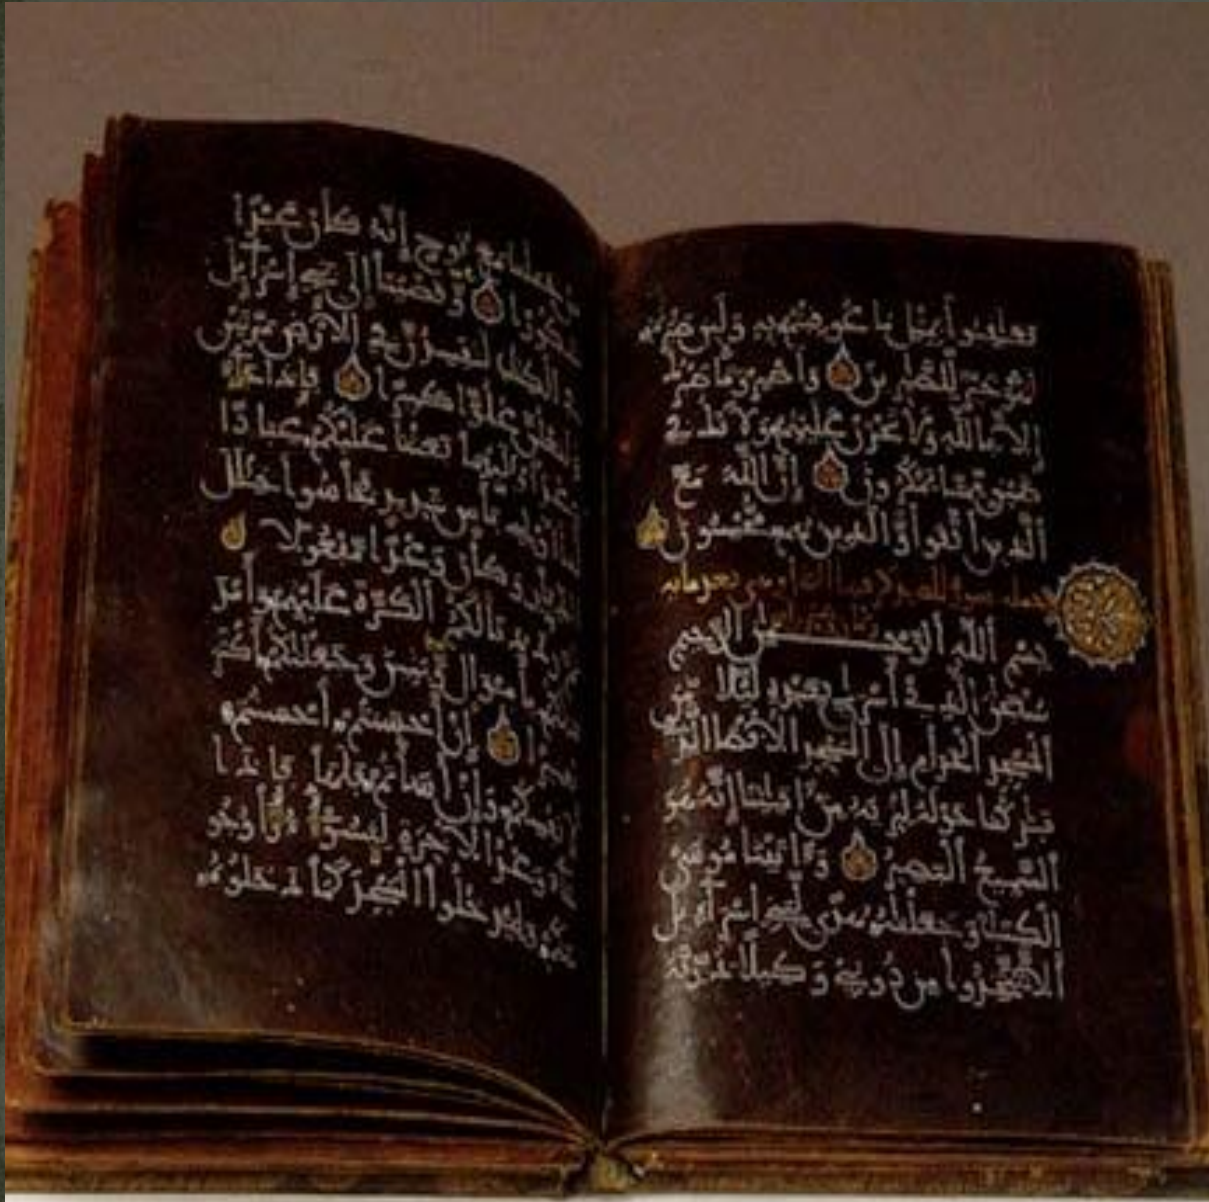 فعاقبوا بمثل ما عوقبتم به ولئن صبرتم
لهو خير للصبرين واصبر وما صبرك
إلا بالله ولا تحزن عليهم ولا تك في
ضيق مما يمكرون إن الله مع
الذين اتقوا والذين هم محسنون
بسم الله الرحمن الرحيم
سبحن الذي أسرى بعبده ليلا من
المسجد الحرام إلى المسجد الأقصا الذي
بركنا حوله لنريه من ءايتنا إنه هو
السميع البصير وءاتينا موسى
الكتب وجعلنه هدى لبني إسرءيل
ألا تتخذوا من دوني وكيلا ذرية
من حملنا مع نوح إنه كان عبدا
شكورا وقضينا إلى بني إسرءيل
في الكتب لتفسدن في الأرض مرتين
ولتعلن علوا كبيرا فإذا جاء
وعد أوليهما بعثنا عليكم عبادا
لنا أولي بأس شديد فجاسوا خلل
الديار وكان وعدا مفعولا
ثم رددنا لكم الكرة عليهم وأمدد
نكم بأموال وبنين وجعلنكم أكثر
نفيرا إن أحسنتم أحسنتم
لأنفسكم وإن أسأتم فلها فإذا
جاء وعد الآخرة ليسوءوا وجو
هكم وليدخلوا المسجد كما دخلوه